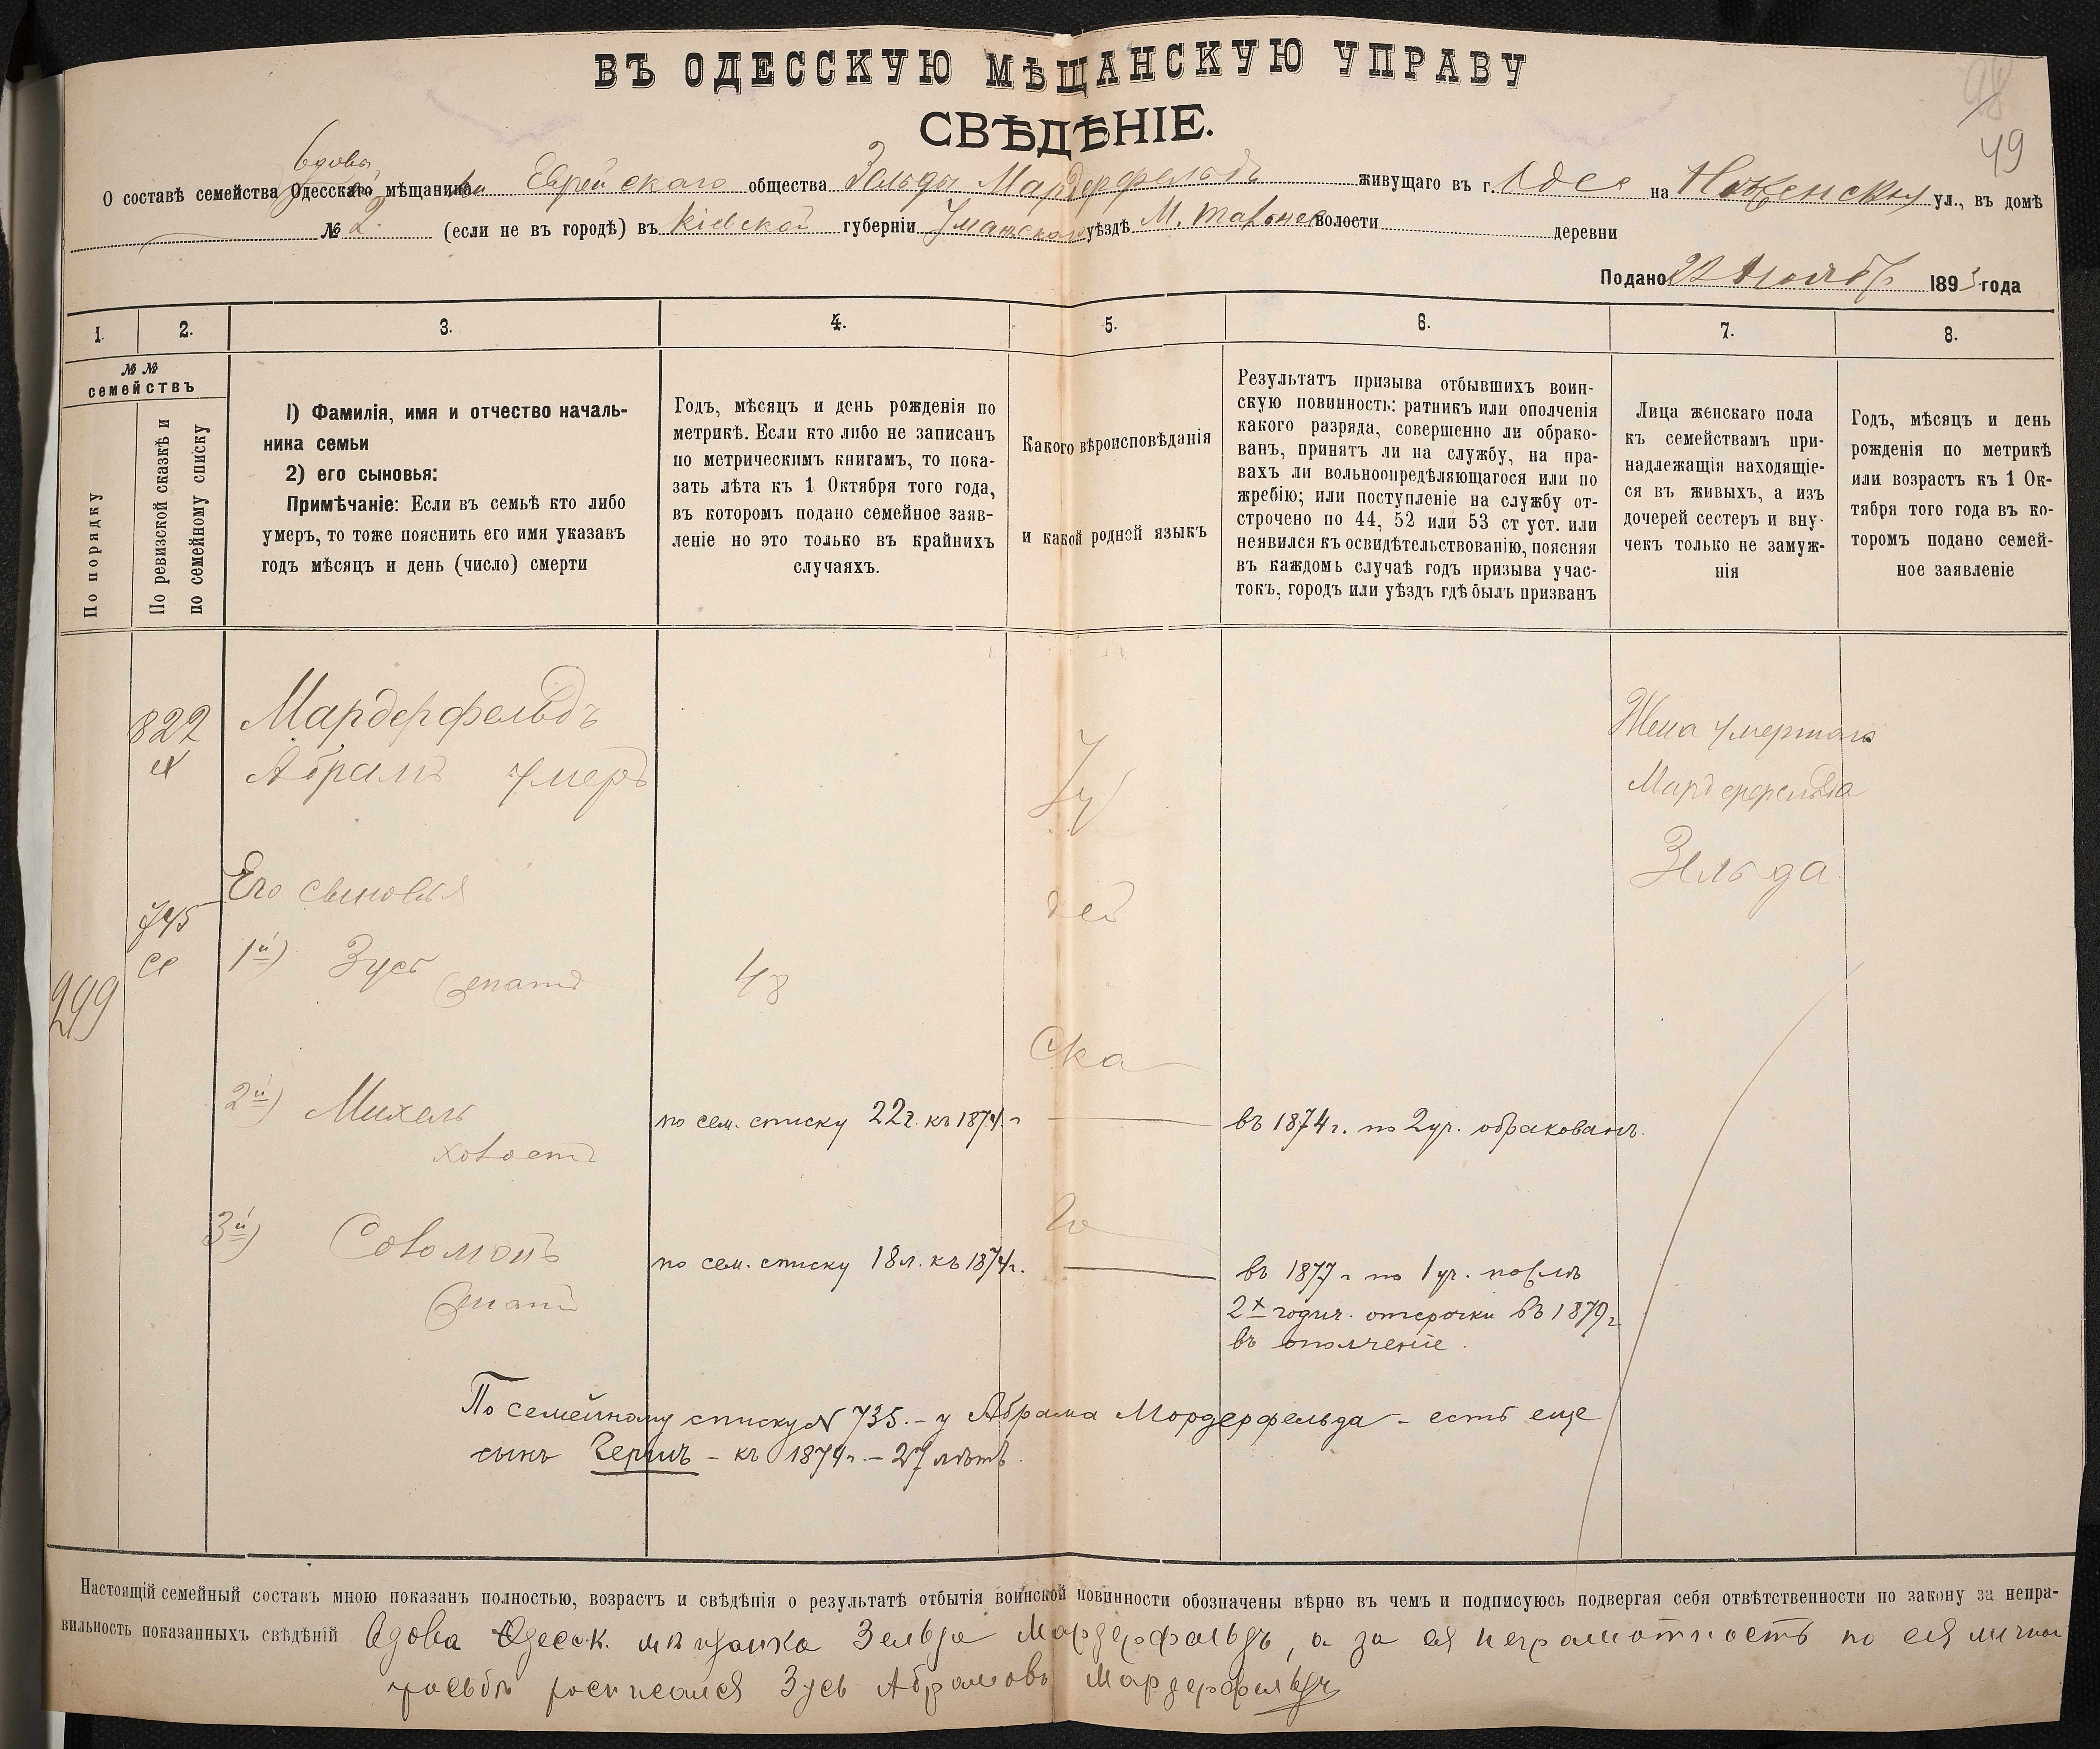 ВЪ ОДЕССКУЮ МѢЩАНСКУЮ УПРАВУ
СВѢДѢНІЕ.
49
вдовы
О составѣ семейства Одесскаго мѣщанина Еврейскаго общества Зельды Мардерфельдъ живущаго въ г. Одес на ул., въ домѣ
№ 2 (если не въ городѣ) въ Кіевской губерніи Уманскаго уѣздѣ М. волости деревни
Подано 22 Ноября 1893 года
1. 2. 3. 4. 5. 6. 7. 8.
№ №
семействъ
По порядку
По ревизской сказкѣ и
по семейному списку
1) Фамилія, имя и отчество началь-
ника семьи
2) его сыновья:
Примѣчаніе: Если въ семьѣ кто либо
умеръ, то тоже пояснить его имя указавъ
годъ мѣсяцъ и день (число) смерти
Годъ, мѣсяцъ и день рожденія по
метрикѣ. Если кто либо не записанъ
по метрическимъ книгамъ, то пока-
зать лѣта къ 1 Октября того года,
въ которомъ подано семейное заяв-
леніе но это только въ крайнихъ
случаяхъ.
Какого вѣроисповѣданія
и какой родной языкъ
Результатъ призыва отбывшихъ воин-
скую повинность: ратникъ или ополченія
какого разряда, совершенно ли обрако-
ванъ, принятъ ли на службу, на пра-
вахъ ли вольноопредѣляющагося или по
жребію; или поступленіе на службу от-
строчено по 44, 52 или 53 ст уст. или
неявился къ освидѣтельствованію, поясняя
въ каждомъ случаѣ годъ призыва учас-
токъ, городъ или уѣздъ гдѣ былъ призванъ
Лица женскаго пола
къ семействамъ при-
надлежащія находящіе-
ся въ живыхъ, а изъ
дочерей сестеръ и вну-
чекъ только не замуж-
нія
Годъ, мѣсяцъ и день
рожденія по метрикѣ
или возрастъ къ 1 Ок-
тября того года въ ко-
торомъ подано семей-
ное заявленіе
299
822
Мардерфельдъ
Абрамъ умеръ
Іу
Жена умершаго
Мардерфельда
Зельда
Его сыновья
745
1й) Зусь женатъ
48
дей
ска
2й) Михель
холостъ
по сем. списку 22 г. къ 1874 г.
въ 1874 г. по 2 уч. обракованъ.
го
3й) Соломонъ
женатъ
по сем. списку 18 л. къ 1874 г.
въ 1877 г по 1 уч.
2х годич. отсрочки въ 1879 г
въ ополченіе.
По семейному списку № 735. – у Абрама Мордерфельда – есть еще
сынъ Гершъ – къ 1874 г. – 27 лѣтъ.
Настоящій семейный составъ мною показанъ полностью, возрастъ и свѣдѣнія о результатѣ отбытія воинской повинности обозначены вѣрно въ чемъ и подписуюсь подвергая себя отвѣтственности по закону за непра-
вильность показанныхъ свѣдѣній Вдова Одесск. мѣщанка Зельда Мардерфельдъ, а за ея неграмотность по ея личной
просьбѣ росписался Зусь Абрамовъ Мардерфельдъ